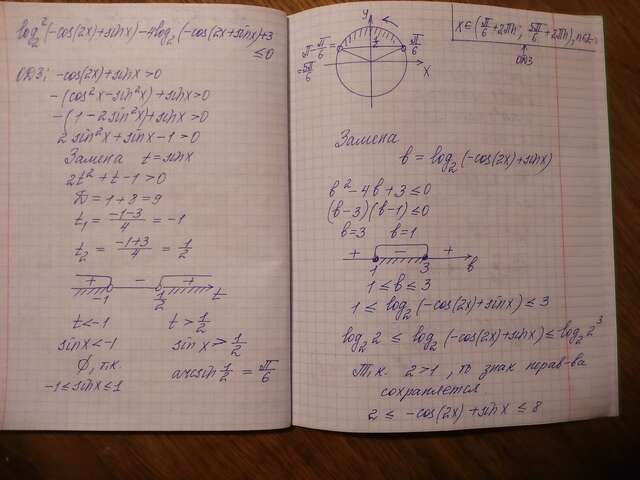 log₂²(-cos(2x)+sinx)-4log₂(-cos(2x)+sinx)+3
≤0
ОДЗ: -cos(2x)+sinx>0
-(cos²x-sin²x)+sinx>0
-(1-2sin²x)+sinx>0
2sin²x+sinx-1>0
Замена t=sinx
2t²+t-1>0
D=1+8=9
t₁=(-1-3)/4=-1
t₂=(-1+3)/4=1/2
+ - +
-1 1/2 t
t<-1 t>1/2
sinx<-1 sinx>1/2
∅, т.к. arcsin 1/2 = π/6
-1≤sinx≤1
y
π-π/6= 1/2 π/6
5π/6 x
x∈(π/6+2πn; 5π/6+2πn), n∈Z
ОДЗ
Замена
b=log₂(-cos(2x)+sinx)
b²-4b+3≤0
(b-3)(b-1)≤0
b=3 b=1
+ - +
1 3 b
1≤b≤3
1≤log₂(-cos(2x)+sinx)≤3
log₂2≤log₂(-cos(2x)+sinx)≤log₂2³
Т.к. 2>1, то знак нерав-ва
сохраняется
2≤-cos(2x)+sinx≤8